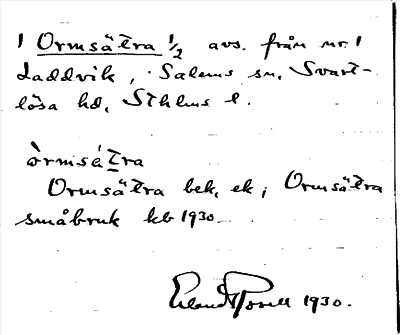 1 Ormsätra 1/2 avs. från nr. 1
Laddvik, Salems sn, Svart-
lösa hd, Sthlms l.
òrmsá̀tra
Ormsätra bek, ek; Ormsätra
småbruk kb 1930.
Erland Rosell 1930.